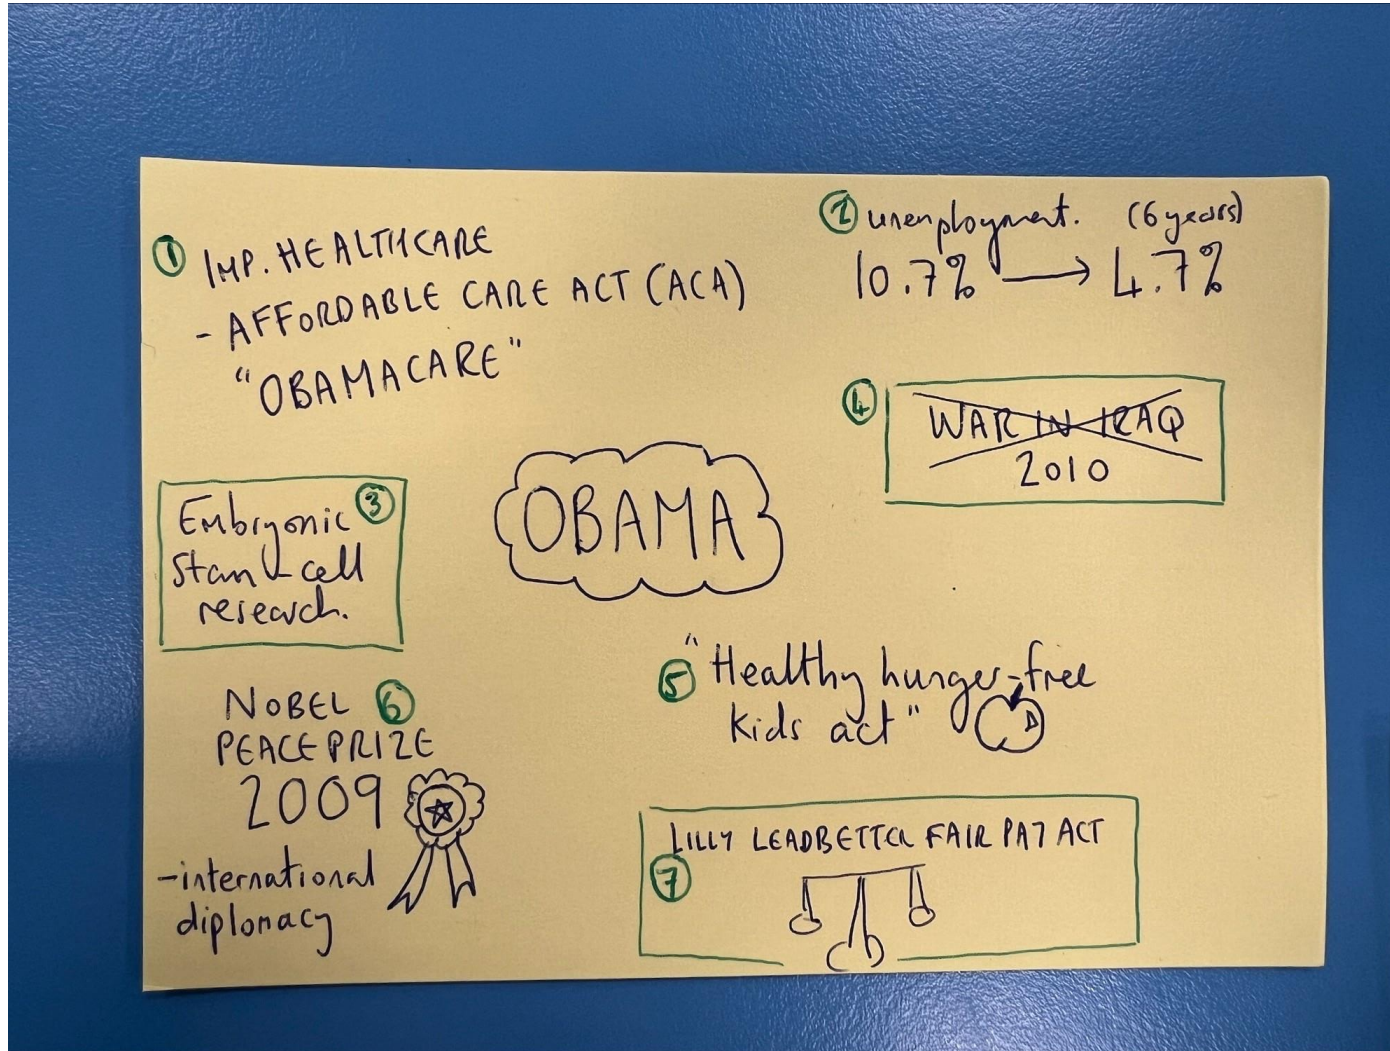 ① IMP. HEALTHCARE
- AFFORDABLE CARE ACT (ACA)
"OBAMACARE"
② unemployment. (6 years)
10.7% → 4.7%
③ Embryonic
stam-cell
research.
④ WAR IN IRAQ
2010
OBAMA
⑤ "Healthy hunger-free
kids act"
NOBEL ⑥
PEACE PRIZE
2009
-international
diplomacy
LILLY LEADBETTER FAIR PAY ACT
⑦